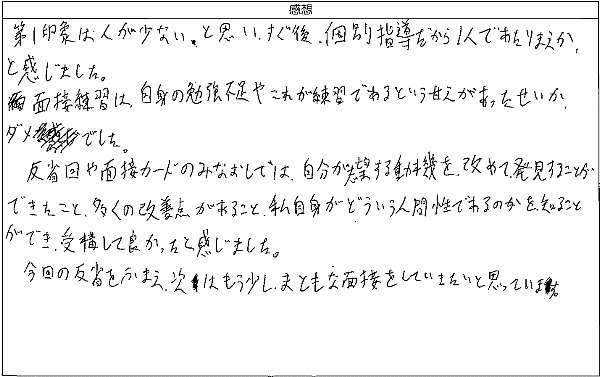 感想
第1印象は人が少ない、と思い、すぐ後、個別指導だから1人であたりまえか、
と感じました。
面接練習は、自身の勉強不足やこれが練習であるという甘えがあったせいか、
ダメでした。
反省回や面接カードのみなおしでは、自分が志望する動機を、改めて発見することが
できたこと、多くの改善点があること、私自身がどういう人間性であるのかを知ること
ができ、受講して良かったと感じました。
今回の反省をふまえ、次はもう少し、まともな面接をしていきたいと思っています。